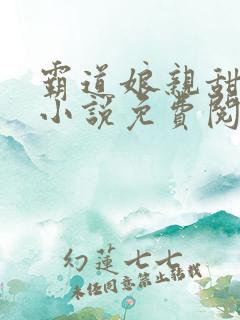 霸道娘親甜
小說免費閱
幻蓮七七
未經同意禁止轉載